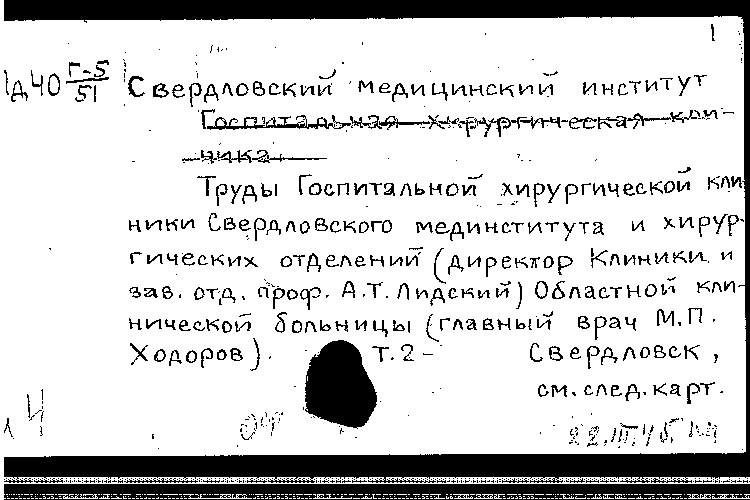 1
1д40 Г-5/51 Свердловский медицинский институт
Госпитальная хирургическая кли-
ника.
Труды Госпитальной хирургической кли
ники Свердловского мединститута и хирур-
гических отделений (директор Клиники и
зав. отд. проф. А.Т. Лидский) Областной кли-
нической больницы (главный врач М.П.
Ходоров). Т.2- Свердловск,
см. след. карт.
4
22.III.45.